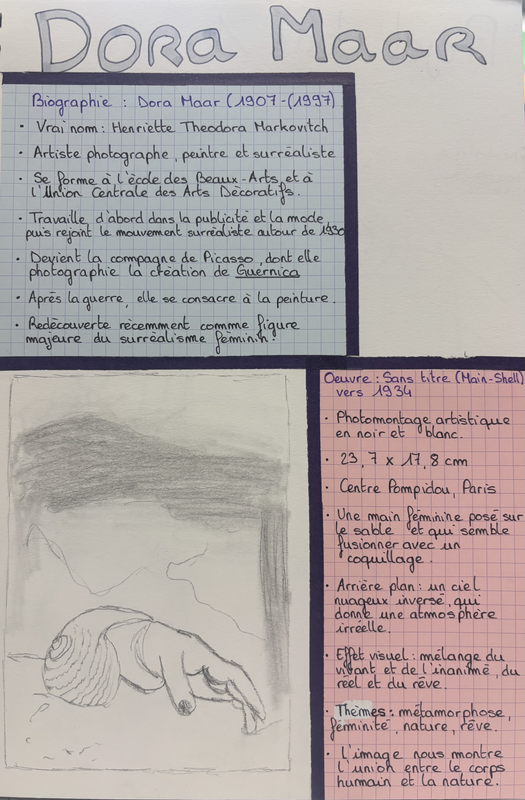 Dora Maar
Biographie : Dora Maar (1907-(1997)
• Vrai nom : Henriette Theodora Markovitch
• Artiste photographe, peintre et surréaliste
• Se forme à l'école des Beaux-Arts, et à
l'Union Centrale des Arts Décoratifs.
• Travaille, d'abord dans la publicité et la mode,
puis rejoint le mouvement surréaliste autour de 1930
• Devient la compagne de Picasso, dont elle
photographie la création de Guernica
• Après la guerre, elle se consacre à la peinture.
• Redécouverte récemment comme figure
majeure du surréalisme féminin.
Oeuvre : Sans titre (Main-Shell)
vers 1934
• Photomontage artistique
en noir et blanc.
• 23,7 x 17,8 cm
• Centre Pompidou, Paris
• Une main féminine posé sur
le sable et qui semble
fusionner avec un
coquillage.
• Arrière plan : un ciel
nuageux inversé, qui
donne une atmosphère
irréelle.
• Effet visuel : mélange du
vivant et de l'inanimé, du
réel et du rêve.
• Thèmes : métamorphose,
féminité, nature, rêve.
• L'image nous montre
l'union entre le corps
humain et la nature.